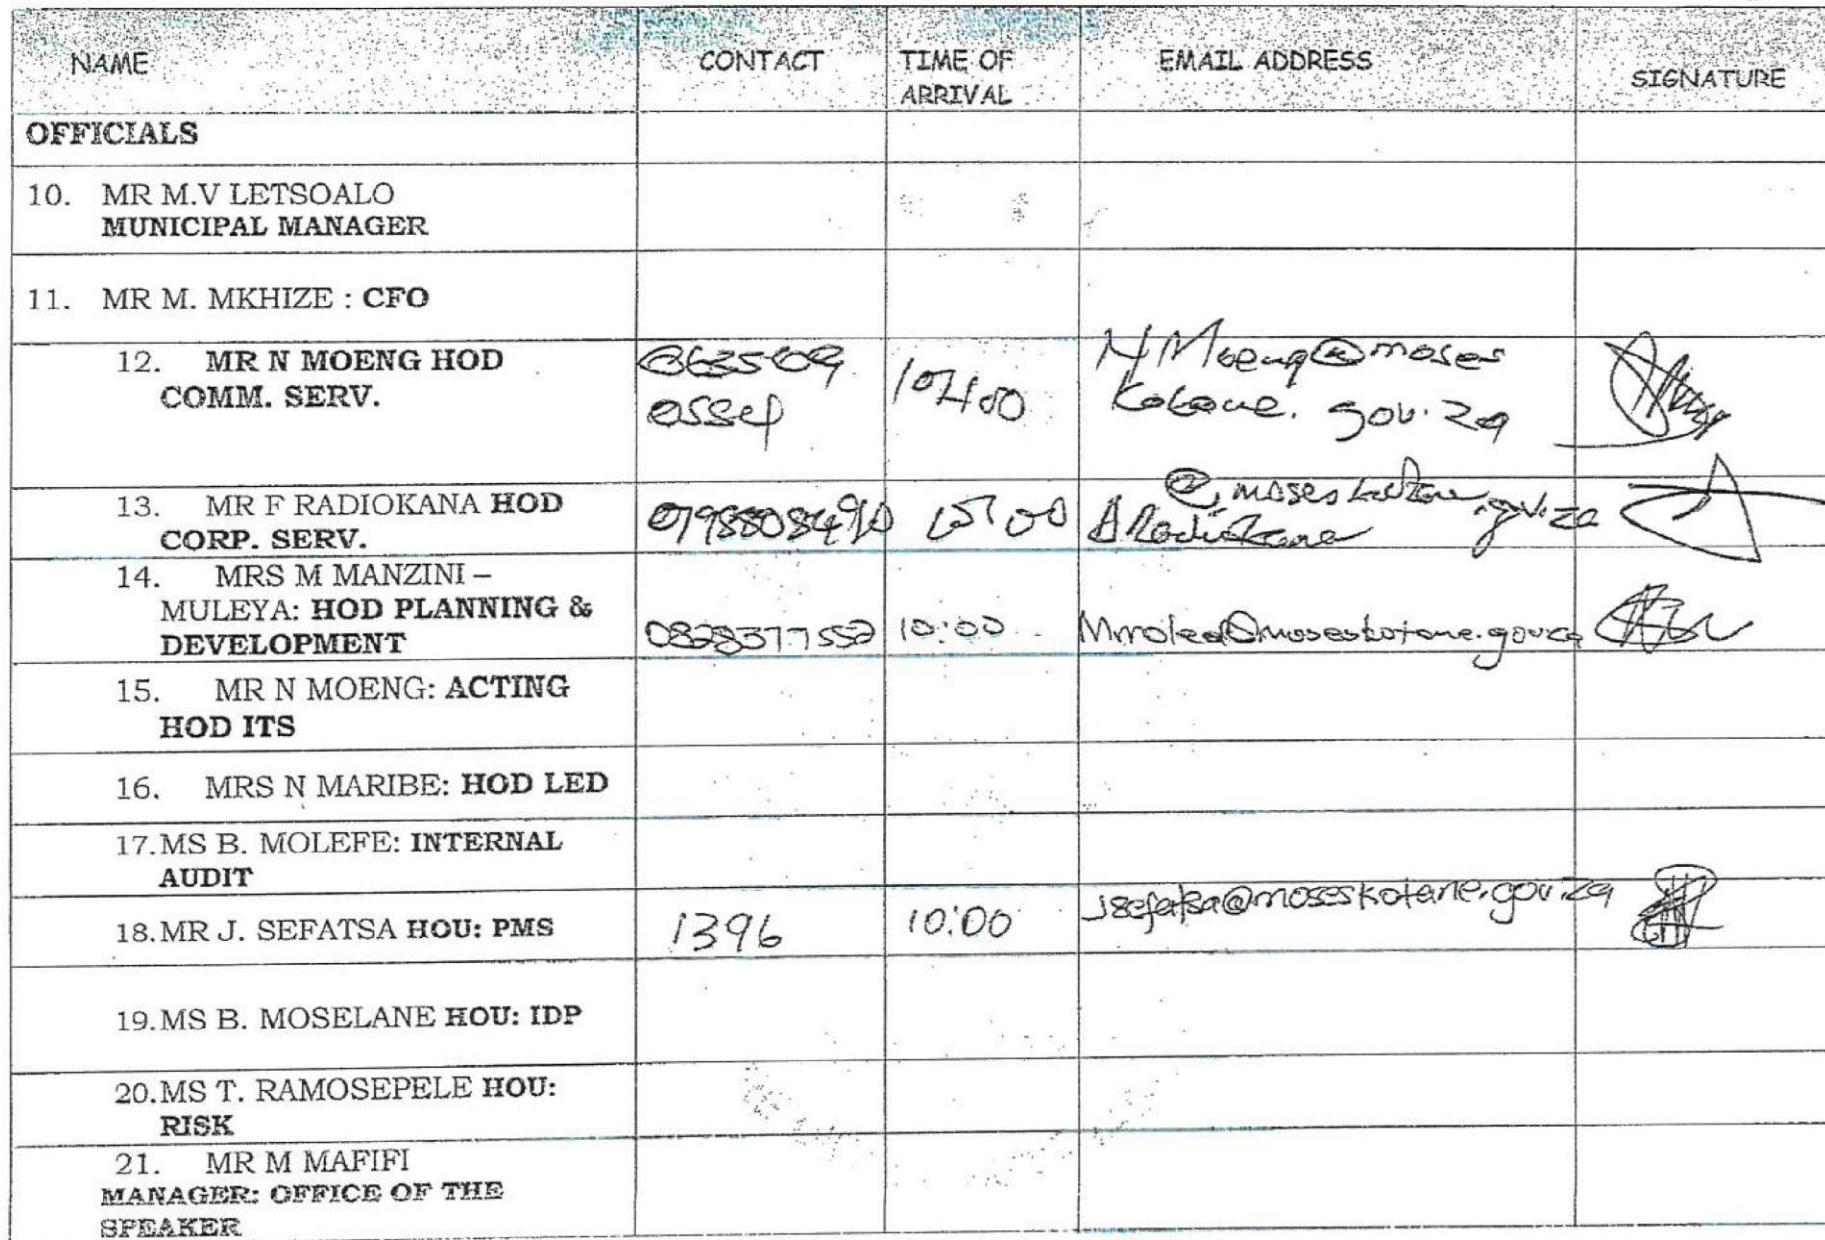 NAME CONTACT TIME OF ARRIVAL EMAIL ADDRESS SIGNATURE
OFFICIALS
10. MR M.V LETSOALO
MUNICIPAL MANAGER
11. MR M. MKHIZE : CFO
12. MR N MOENG HOD
COMM. SERV.
NMoeng@moses
kotane. gov.za
13. MR F RADIOKANA HOD
CORP. SERV.
@moseskotane.gov.za
14. MRS M MANZINI –
MULEYA: HOD PLANNING &
DEVELOPMENT
0828377552 10:00
15. MR N MOENG: ACTING
HOD ITS
16. MRS N MARIBE: HOD LED
17. MS B. MOLEFE: INTERNAL
AUDIT
18. MR J. SEFATSA HOU: PMS 1396 10:00 Jsefatsa@moseskotane.gov.za
19. MS B. MOSELANE HOU: IDP
20. MS T. RAMOSEPELE HOU:
RISK
21. MR M MAFIFI
MANAGER: OFFICE OF THE
SPEAKER